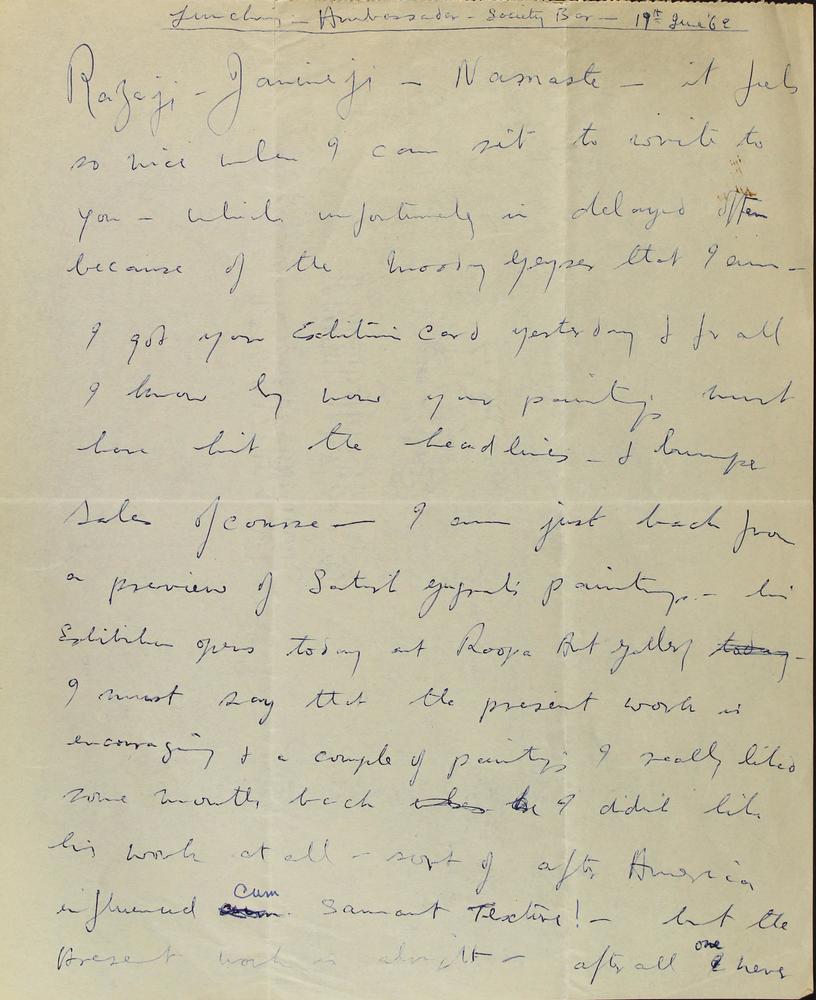 Lunching - Ambassador - Society Bar - 19th June '62
Razaji - Janineji - Namaste - it feels
so nice when I can sit to write to
you - which unfortunately is delayed often
because of the moody geyser that I am -
I got your Exhibition Card yesterday & for all
I know by now your paintings must
have hit the headlines - & bumper
Sales ofcourse - I am just back from
a preview of Satish gujral's paintings - his
Exhibition opens today at Roopa Art gallery today -
I must say that the present work is
encouraging & a couple of paintings I really liked
some months back when he I didn't like
his work at all - sort of after America
influenced cum Samant Texture! - but the
Present work is alright - after all one never